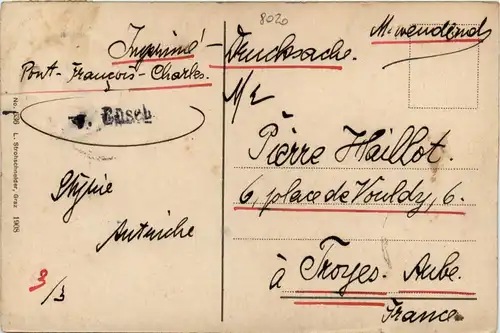 8020
Imprimé - Drucksache.
Pont-François-Charles.
M/E
Bösch
Pierre Haillot.
6, place de Vouldy, 6.
Styrie
Autriche
à Troyes. Aube.
France
3/3
L. Strohschneider, Graz 1908